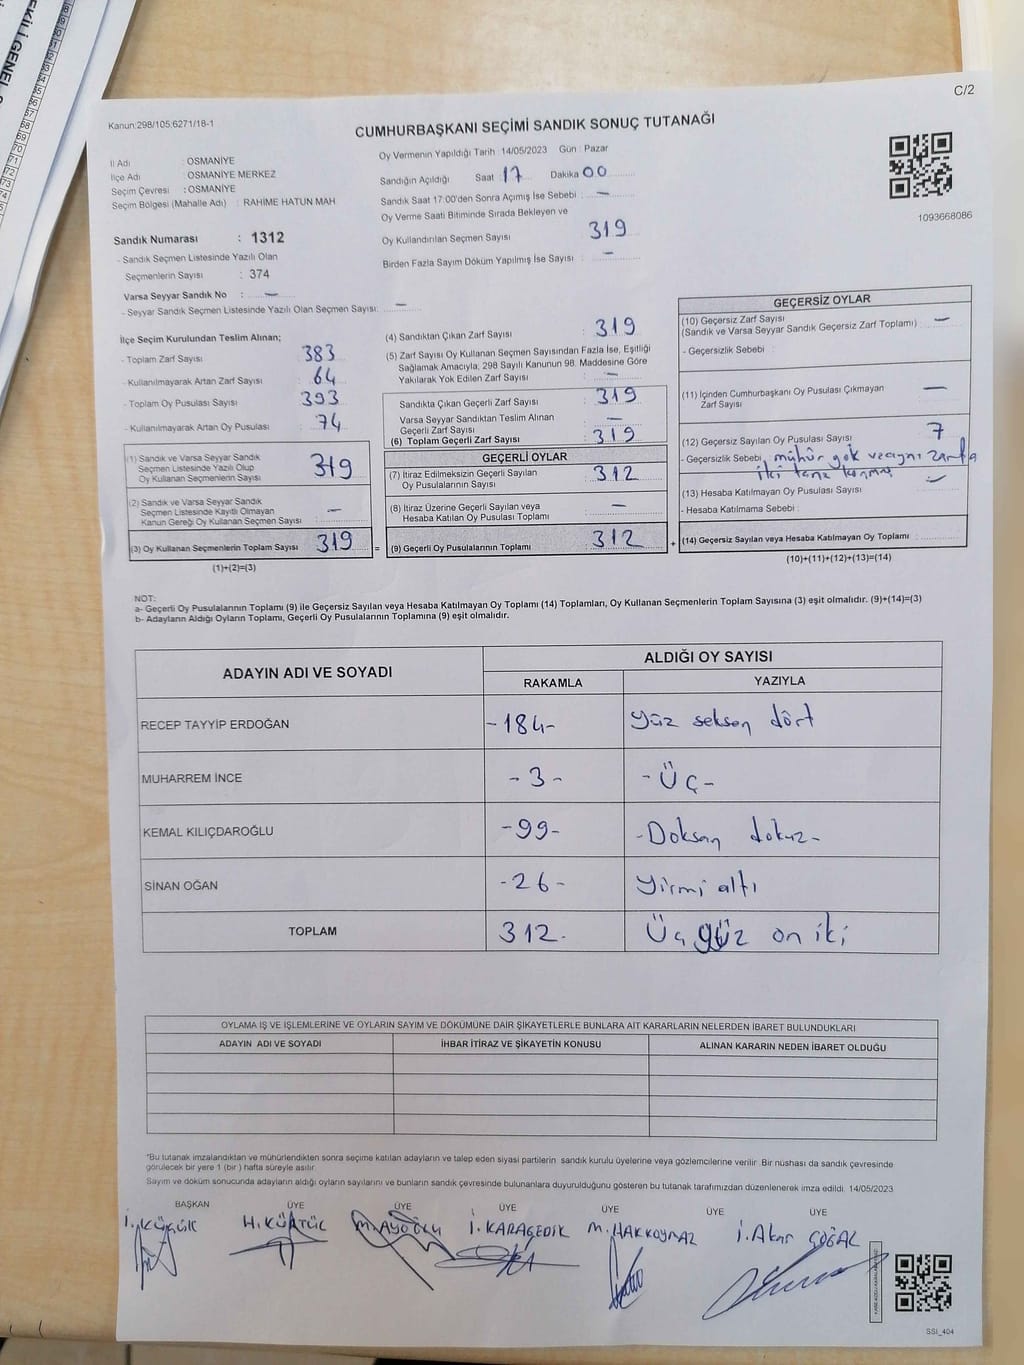 EKİLİ GENEL S
C/2
Kanun:298/105;6271/18-1
CUMHURBAŞKANI SEÇİMİ SANDIK SONUÇ TUTANAĞI
İl Adı : OSMANİYE
İlçe Adı : OSMANİYE MERKEZ
Seçim Çevresi : OSMANİYE
Seçim Bölgesi (Mahalle Adı) : RAHİME HATUN MAH
Sandık Numarası : 1312
- Sandık Seçmen Listesinde Yazılı Olan
Seçmenlerin Sayısı : 374
Varsa Seyyar Sandık No : —
- Seyyar Sandık Seçmen Listesinde Yazılı Olan Seçmen Sayısı: —
Oy Vermenin Yapıldığı Tarih :14/05/2023 Gün : Pazar
Sandığın Açıldığı Saat : 17 Dakika 00
Sandık Saat 17:00'den Sonra Açımış İse Sebebi : —
Oy Verme Saati Bitiminde Sırada Bekleyen ve
Oy Kullandırılan Seçmen Sayısı : 319
Birden Fazla Sayım Döküm Yapılmış İse Sayısı : —
1093668086
İlçe Seçim Kurulundan Teslim Alınan;
- Toplam Zarf Sayısı : 383
- Kullanılmayarak Artan Zarf Sayısı : 64
- Toplam Oy Pusulası Sayısı : 393
- Kullanılmayarak Artan Oy Pusulası : 74
(1) Sandık ve Varsa Seyyar Sandık
Seçmen Listesinde Yazılı Olup
Oy Kullanan Seçmenlerin Sayısı : 319
(2) Sandık ve Varsa Seyyar Sandık
Seçmen Listesinde Kayıtlı Olmayan
Kanun Gereği Oy Kullanan Seçmen Sayısı : —
(3) Oy Kullanan Seçmenlerin Toplam Sayısı : 319
(1)+(2)=(3)
(4) Sandıktan Çıkan Zarf Sayısı : 319
(5) Zarf Sayısı Oy Kullanan Seçmen Sayısından Fazla İse, Eşitliği
Sağlamak Amacıyla, 298 Sayılı Kanunun 98. Maddesine Göre
Yakılarak Yok Edilen Zarf Sayısı : —
Sandıkta Çıkan Geçerli Zarf Sayısı : 319
Varsa Seyyar Sandıktan Teslim Alınan
Geçerli Zarf Sayısı : —
(6) Toplam Geçerli Zarf Sayısı : 319
GEÇERLİ OYLAR
(7) İtiraz Edilmeksizin Geçerli Sayılan
Oy Pusulalarının Sayısı : 312
(8) İtiraz Üzerine Geçerli Sayılan veya
Hesaba Katılan Oy Pusulası Toplamı : —
= (9) Geçerli Oy Pusulalarının Toplamı : 312 +
GEÇERSİZ OYLAR
(10) Geçersiz Zarf Sayısı : —
(Sandık ve Varsa Seyyar Sandık Geçersiz Zarf Toplamı)
- Geçersizlik Sebebi :
(11) İçinden Cumhurbaşkanı Oy Pusulası Çıkmayan
Zarf Sayısı : —
(12) Geçersiz Sayılan Oy Pusulası Sayısı : 7
- Geçersizlik Sebebi mühür yok ve aynı zarfa
iki tane
(13) Hesaba Katılmayan Oy Pusulası Sayısı : —
- Hesaba Katılmama Sebebi :
(14) Geçersiz Sayılan veya Hesaba Katılmayan Oy Toplamı :
(10)+(11)+(12)+(13)=(14)
NOT:
a- Geçerli Oy Pusulalarının Toplamı (9) ile Geçersiz Sayılan veya Hesaba Katılmayan Oy Toplamı (14) Toplamları, Oy Kullanan Seçmenlerin Toplam Sayısına (3) eşit olmalıdır. (9)+(14)=(3)
b- Adayların Aldığı Oyların Toplamı, Geçerli Oy Pusulalarının Toplamına (9) eşit olmalıdır.
ADAYIN ADI VE SOYADI ALDIĞI OY SAYISI
RAKAMLA YAZIYLA
RECEP TAYYİP ERDOĞAN -184- yüz seksen dört
MUHARREM İNCE -3- -Üç-
KEMAL KILIÇDAROĞLU -99- -Doksan dokuz-
SİNAN OĞAN -26- yirmi altı
TOPLAM 312- Üç yüz on iki
OYLAMA İŞ VE İŞLEMLERİNE VE OYLARIN SAYIM VE DÖKÜMÜNE DAİR ŞİKAYETLERLE BUNLARA AİT KARARLARIN NELERDEN İBARET BULUNDUKLARI
ADAYIN ADI VE SOYADI İHBAR İTİRAZ VE ŞİKAYETİN KONUSU ALINAN KARARIN NEDEN İBARET OLDUĞU
*Bu tutanak imzalandıktan ve mühürlendikten sonra seçime katılan adayların ve talep eden siyasi partilerin sandık kurulu üyelerine veya gözlemcilerine verilir. Bir nüshası da sandık çevresinde
görülecek bir yere 1 (bir) hafta süreyle asılır.
Sayım ve döküm sonucunda adayların aldığı oyların sayılarını ve bunların sandık çevresinde bulunanlara duyurulduğunu gösteren bu tutanak tarafımızdan düzenlenerek imza edildi. 14/05/2023
BAŞKAN ÜYE ÜYE ÜYE ÜYE ÜYE ÜYE
İ. KÜÇÜK H. KÜRTÜL İ. KARAGEDİK M. HAKKOYMAZ İ. Akar
SSI_404